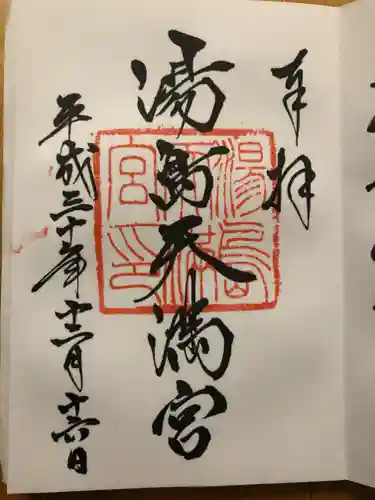 奉拝
湯島天満宮
平成三十年十一月十六日